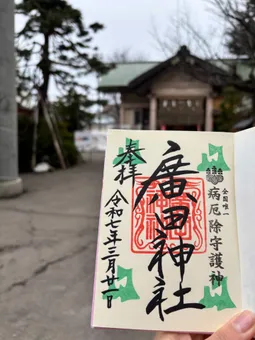 全国唯一
病厄除守護神
廣田神社
奉拝
令和七年三月廿日